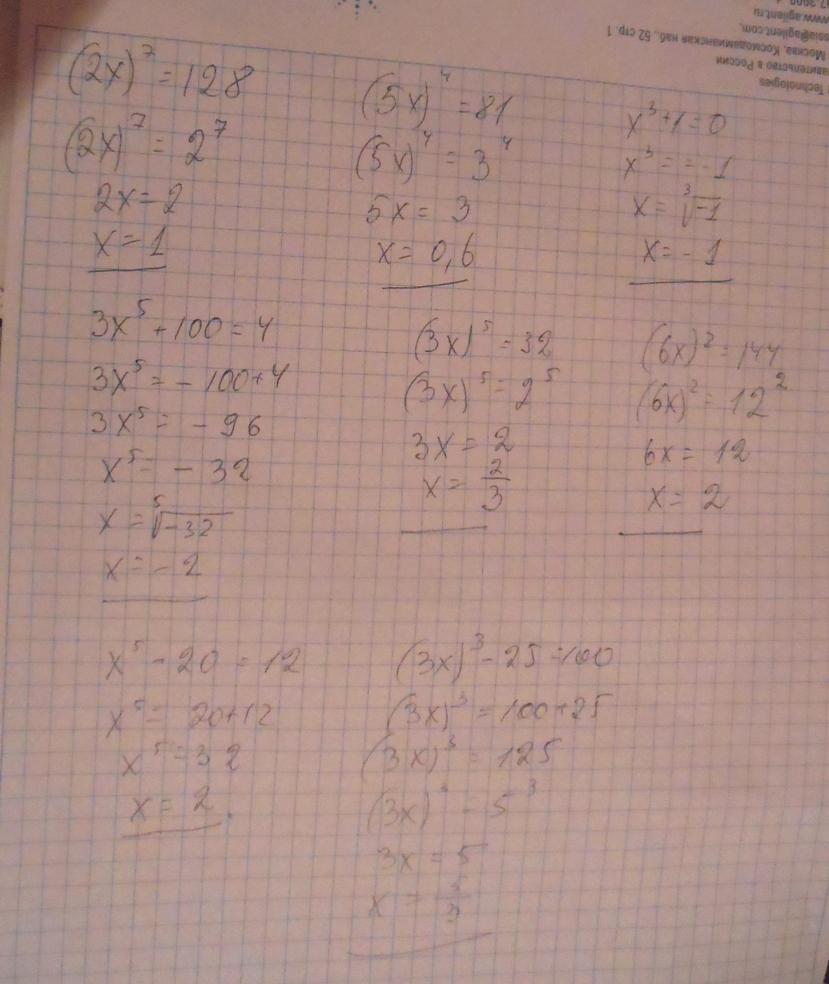 (2x)⁷ = 128
(2x)⁷ = 2⁷
2x = 2
x = 1
(5x)⁴ = 81
(5x)⁴ = 3⁴
5x = 3
x = 0,6
x³ + 1 = 0
x³ = = -1
x = ³√-1
x = -1
3x⁵ + 100 = 4
3x⁵ = -100+4
3x⁵ = -96
x⁵ = -32
x = ⁵√-32
x = -2
(3x)⁵ = 32
(3x)⁵ = 2⁵
3x = 2
x = 2/3
(6x)² = 144
(6x)² = 12²
6x = 12
x = 2
x⁵ - 20 = 12
x⁵ = 20+12
x⁵ = 32
x = 2.
(3x)³ - 25 = 100
(3x)³ = 100+25
(3x)³ = 125
(3x)³ = 5³
3x = 5
x = 5/3
Technologies
в России
Москва, Космодамианская наб. 52 стр. 1
@agilent.com,
www.agilent.ru